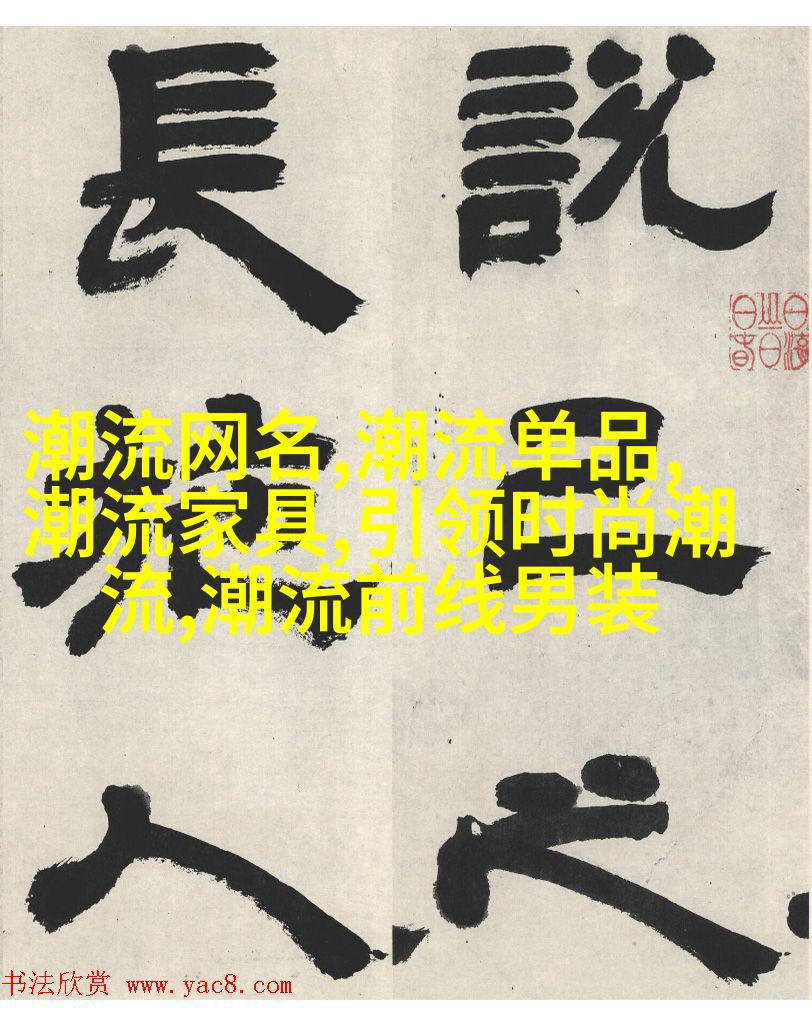 說己之
長施人
潮流网名,潮流单品,
潮流家具,引领时尚潮
流,潮流前线男装
书法欣赏 www.yac8.com